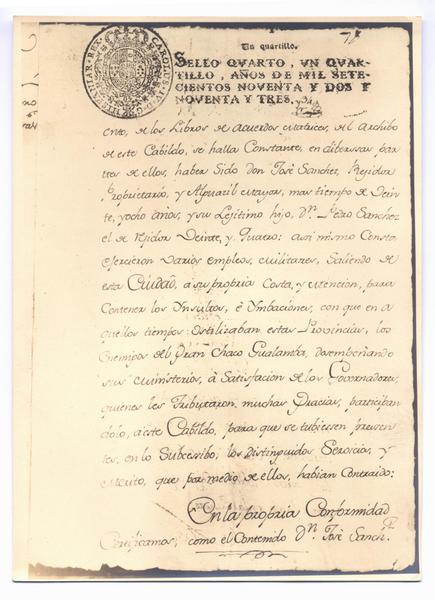 Un quartillo.
SELLO QVARTO, VN QVAR-
TILLO, AÑOS DE MIL SETE-
CIENTOS NOVENTA Y DOS Y
NOVENTA Y TRES.
CAROLUS IV D. G. HISPANIAR REX
ento, de los Libros de acuerdos, del Archibo
de este Cabildo, se halla Constante, en diberssas par
tes de ellos, haber Sido don José Sanchez, Rejidor
Proprietario, y Alguazil mayor, mas tiempo de Vein
te, y ocho años, y su Lejitimo hijo, Dn. Pedro Sanchez
el de Rejidor Veinte, y quatro: assi mismo Consta,
ejercieron Varios empleos, militares, Saliendo de
esta Ciudad, a su propria Costa, y mencion, para
Contener los Ynsultos, é Ymbaciones, con que en a
quellos tiempos ostilizaban estas Provincias, los
Enemigos del Gran Chaco Gualamba, desempeñando
sus ministerios, á Satisfacion de los Governadores,
quienes les Tributaron muchas Gracias, participan
dolo, a este Cabildo, para que se tubiessen pressen
tes, en lo Subcesibo, los distinguidos Servicios, y
Merito, que por medio de ellos, habian Contraido:
En la propria Conformidad
Certificamos, como el Contenido Dn. José Sanch.